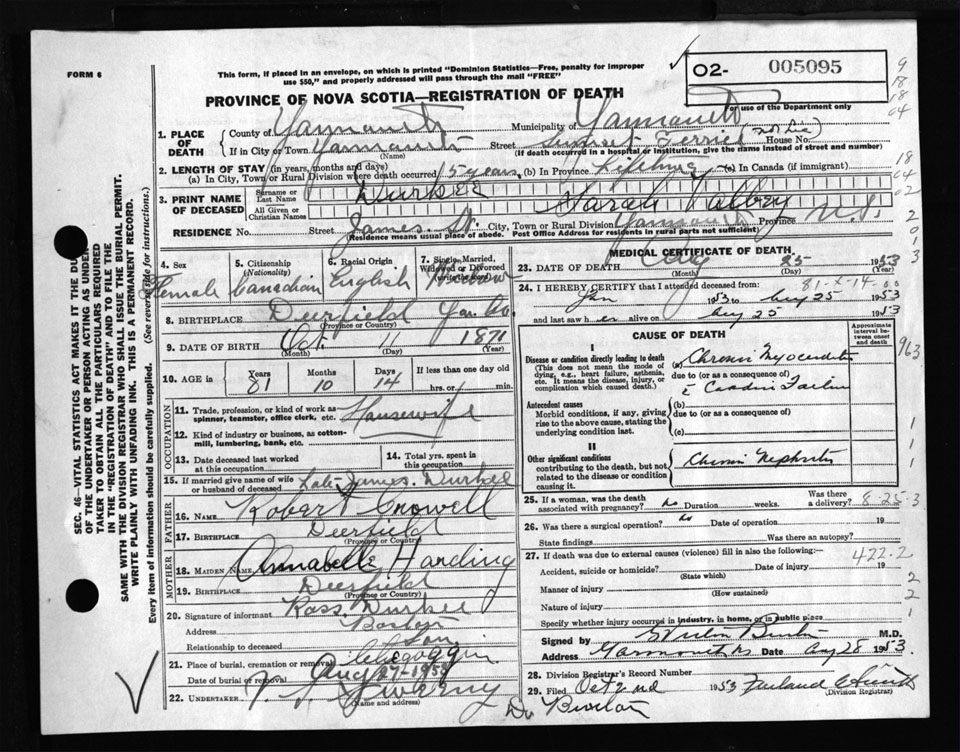 FORM 6
This form, if placed in an envelope, on which is printed "Dominion Statistics—Free, penalty for improper
use $50," and properly addressed will pass through the mail "FREE"
O2- 005095
For use of the Department only
9
18
18
04
PROVINCE OF NOVA SCOTIA—REGISTRATION OF DEATH
1. PLACE OF DEATH
County of Yarmouth Municipality of Yarmouth
If in City or Town Yarmouth (Name) Street Sunset Terrace House No.
(If death occurred in a hospital or institution, give the name instead of street and number)
2. LENGTH OF STAY (in years, months and days)
(a) In City, Town or Rural Division where death occurred 15 years (b) In Province Lifetime (c) In Canada (if immigrant)
18
04
02
3. PRINT NAME OF DECEASED
Surname or Last Name DURKEE
All Given or Christian Names Sarah
RESIDENCE No. Street James St. City, Town or Rural Division Yarmouth Province N.S.
Residence means usual place of abode. Post Office Address for residents in rural parts not sufficient)
2
0
1
3
4. Sex Female
5. Citizenship (Nationality) Canadian
6. Racial Origin English
7. Single, Married, Widowed or Divorced (write the word) Widow
8. BIRTHPLACE Deerfield Yar. Co.
(Province or Country)
9. DATE OF BIRTH Oct. 11 1871
(Month) (Day) (Year)
10. AGE in Years 81 Months 10 Days 14 If less than one day hrs. or min.
OCCUPATION
11. Trade, profession, or kind of work as spinner, teamster, office clerk, etc. Housewife
12. Kind of industry or business, as cotton-mill, lumbering, bank, etc.
13. Date deceased last worked at this occupation
14. Total yrs. spent in this occupation
15. If married give name of wife or husband of deceased Late James Durkee
FATHER
16. NAME Robert Crowell
17. BIRTHPLACE Deerfield
(Province or Country)
MOTHER
18. MAIDEN NAME Annabelle Harding
19. BIRTHPLACE Deerfield
(Province or Country)
20. Signature of informant Ross Durkee
Address Boston
Relationship to deceased Son
21. Place of burial, cremation or removal Chegoggin
Date of burial or removal Aug 27 1953
22. UNDERTAKER Sweeny
(Name and address)
MEDICAL CERTIFICATE OF DEATH
23. DATE OF DEATH Aug 25 1953
(Month) (Day) (Year)
81-X-14
24. I HEREBY CERTIFY that I attended deceased from:
Jan 1953 to Aug 25 1953
and last saw h er alive on Aug 25 1953
CAUSE OF DEATH
Approximate interval between onset and death
I
Disease or condition directly leading to death (This does not mean the mode of dying, e.g., heart failure, asthenia, etc. It means the disease, injury, or complication which caused death.)
(a) Chronic Myocarditis
due to (or as a consequence of)
c̄ Cardiac Failure
Antecedent causes
Morbid conditions, if any, giving rise to the above cause, stating the underlying condition last.
(b)
due to (or as a consequence of)
(c)
II
Other significant conditions contributing to the death, but not related to the disease or condition causing it.
Chronic Nephritis
963
1
1
25. If a woman, was the death associated with pregnancy? no Duration weeks. Was there a delivery?
8-25-3
26. Was there a surgical operation? no Date of operation 19
State findings Was there an autopsy?
27. If death was due to external causes (violence) fill in also the following:—
422.2
Accident, suicide or homicide? Date of injury 19
(State which)
Manner of injury
(How sustained)
Nature of injury
Specify whether injury occurred in industry, in home, or in public place
2
2
1
Signed by Burton M.D.
Address Yarmouth, N.S. Date Aug 28 1953
28. Division Registrar's Record Number
29. Filed Oct 2nd 1953
(Division Registrar)
Dr Burton
SEC. 46—VITAL STATISTICS ACT MAKES IT THE DUTY
OF THE UNDERTAKER OR PERSON ACTING AS UNDER-
TAKER TO OBTAIN ALL THE PARTICULARS REQUIRED
IN THE "REGISTRATION OF DEATH" AND TO FILE THE
SAME WITH THE DIVISION REGISTRAR WHO SHALL ISSUE THE BURIAL PERMIT.
WRITE PLAINLY WITH UNFADING INK. THIS IS A PERMANENT RECORD.
Every item of information should be carefully supplied. (See reverse side for instructions.)